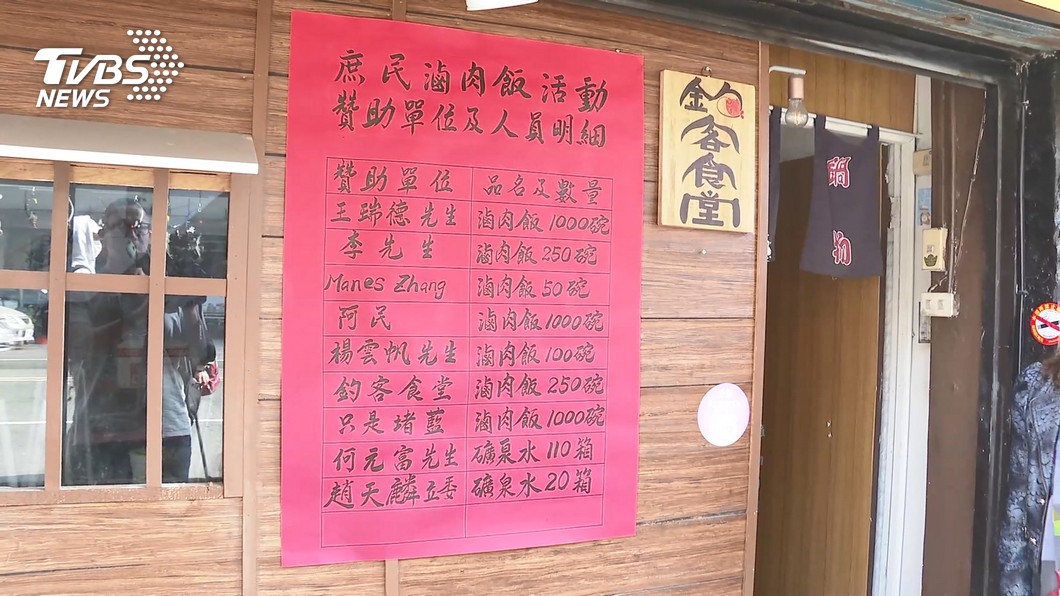 TVBS
NEWS
庶民滷肉飯活動
贊助單位及人員明細
贊助單位 品名及數量
王踹德先生 滷肉飯1000碗
李先生 滷肉飯250碗
Manes Zhang 滷肉飯50碗
阿民 滷肉飯1000碗
楊雲帆先生 滷肉飯100碗
釣客食堂 滷肉飯250碗
只是堵藍 滷肉飯1000碗
何元富先生 礦泉水110箱
趙天麟立委 礦泉水20箱
釣客食堂